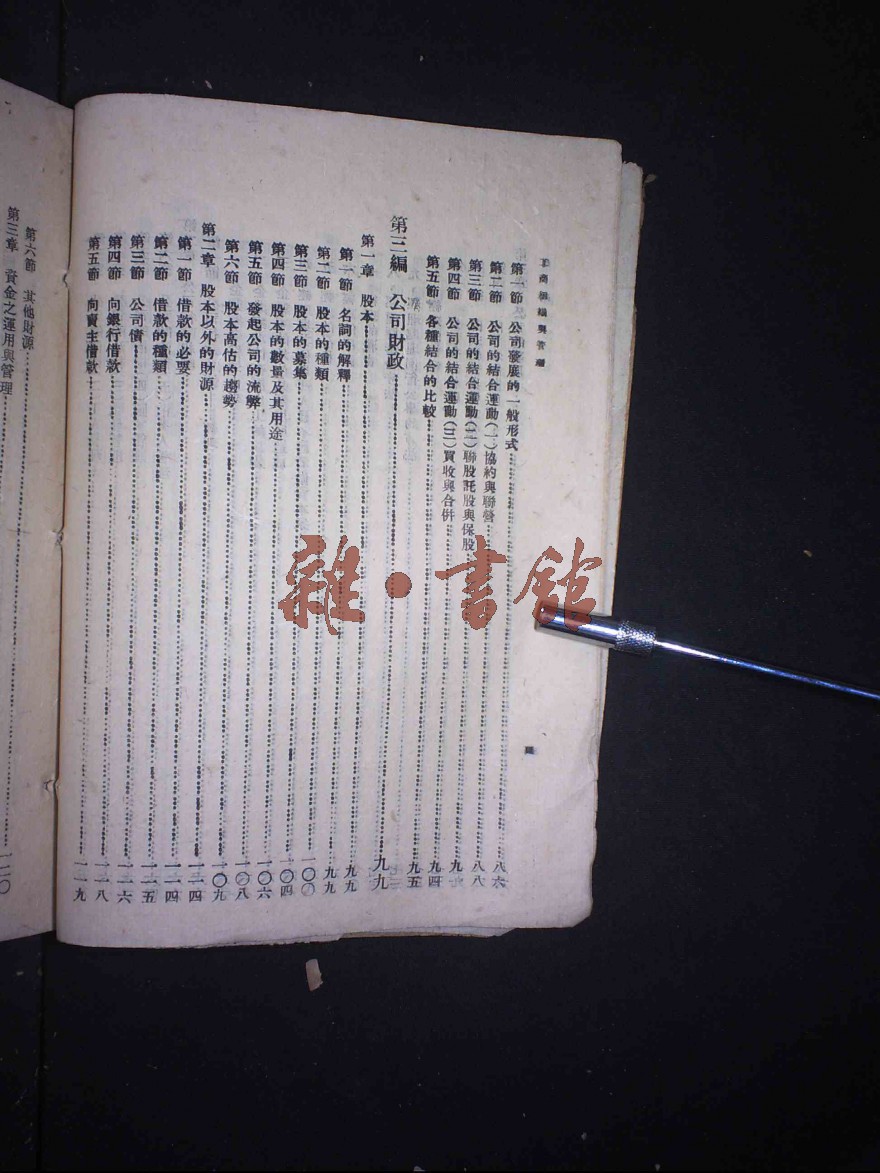 工商組織與管理
第一節 公司發展的一般形式……八六
第二節 公司的結合運動(一)協約與聯營……八八
第三節 公司的結合運動(二)聯股託股與保股……九一
第四節 公司的結合運動(三)買收與合併……九四
第五節 各種結合的比較……九五
第三編 公司財政……九九
第一章 股本……九九
第一節 名詞的解釋……九九
第二節 股本的種類……一〇〇
第三節 股本的募集……一〇四
第四節 股本的數量及其用途……一〇六
第五節 發起公司的流弊……一〇八
第六節 股本高估的趨勢……一〇九
第二章 股本以外的財源……一一四
第一節 借款的必要……一一四
第二節 借款的種類……一一五
第三節 公司債……一一六
第四節 向銀行借款……一一八
第五節 向賣主借款……一一九
四
第六節 其他財源……
第三章 資金之運用與管理……一二〇
雜·書館